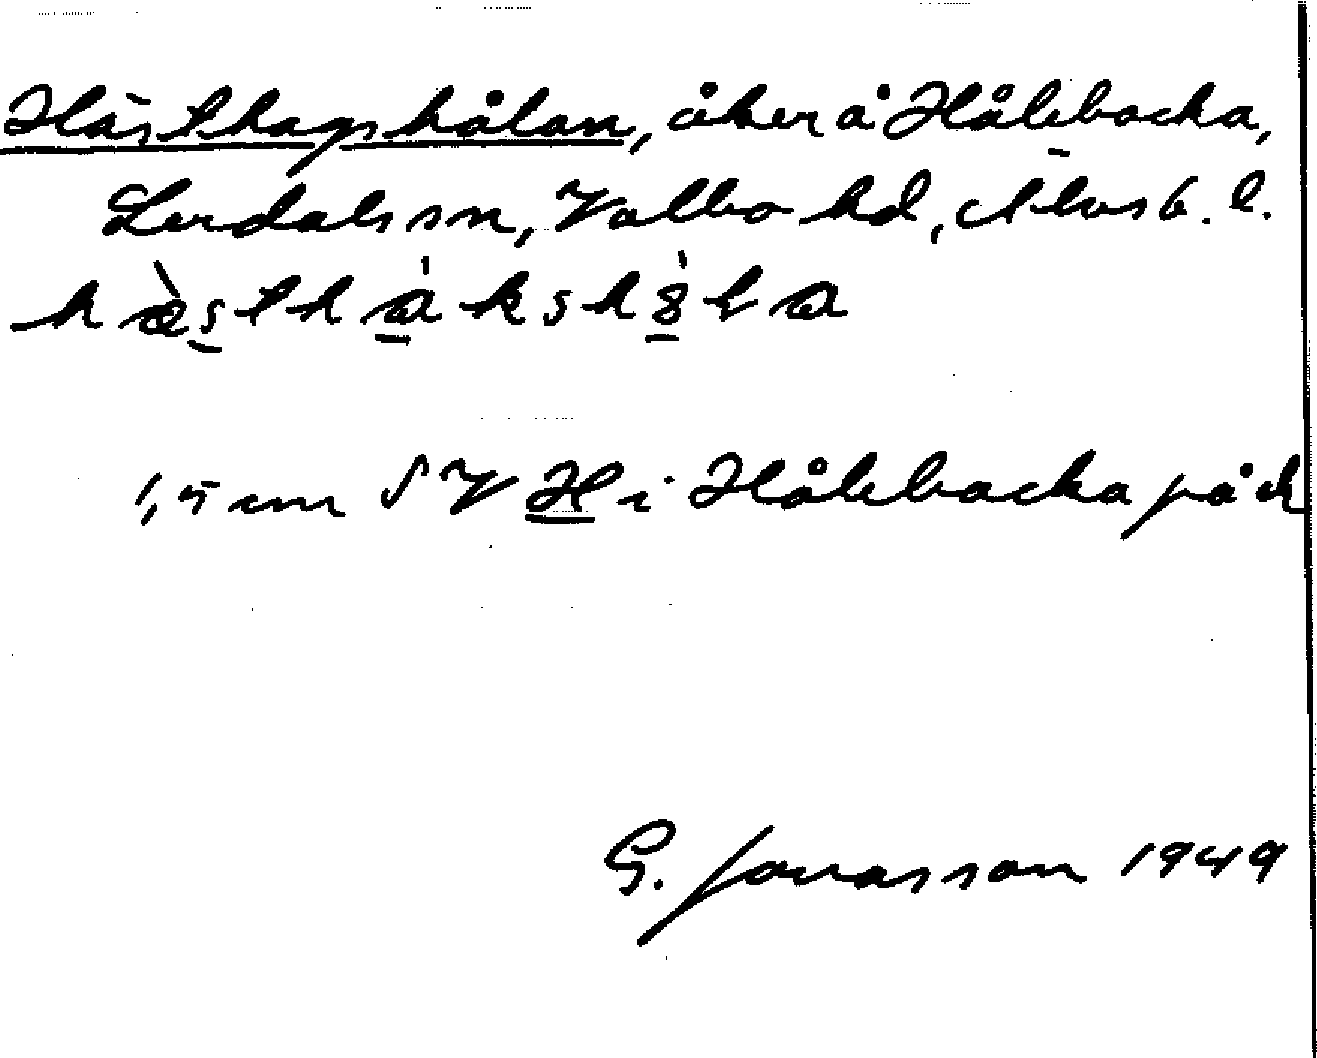 Hästhagshålan, åker å Hålebacka,
Lerdals sn, Valbo hd, Älvsb. l.
1,5 cm SV H i Hålebacka på ek
G. Jonasson 1949